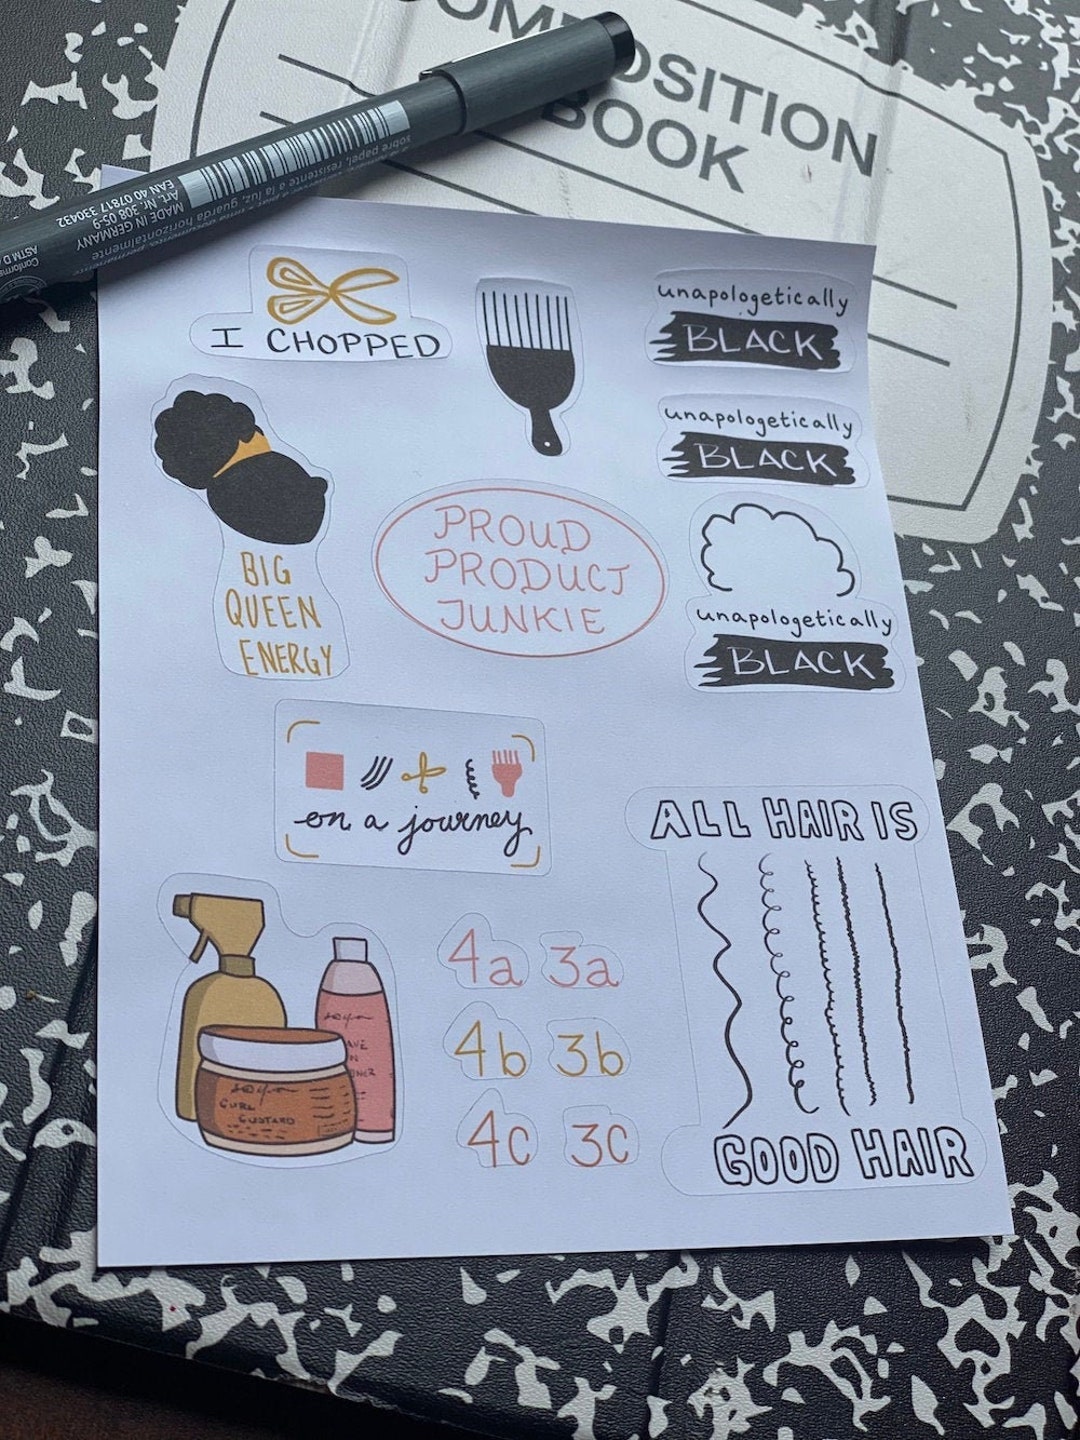 COMPOSITION
BOOK
sobre papel, resistente a la luz, guarda
MADE IN GERMANY
Art. Nr. 308 05-9
EAN 40 07817 330432
ASTM D
I CHOPPED
unapologetically
BLACK
unapologetically
BLACK
BIG
QUEEN
ENERGY
PROUD
PRODUCT
JUNKIE
unapologetically
BLACK
on a journey
ALL HAIR IS
GOOD HAIR
CURL
CUSTARD
4a 3a
4b 3b
4c 3c